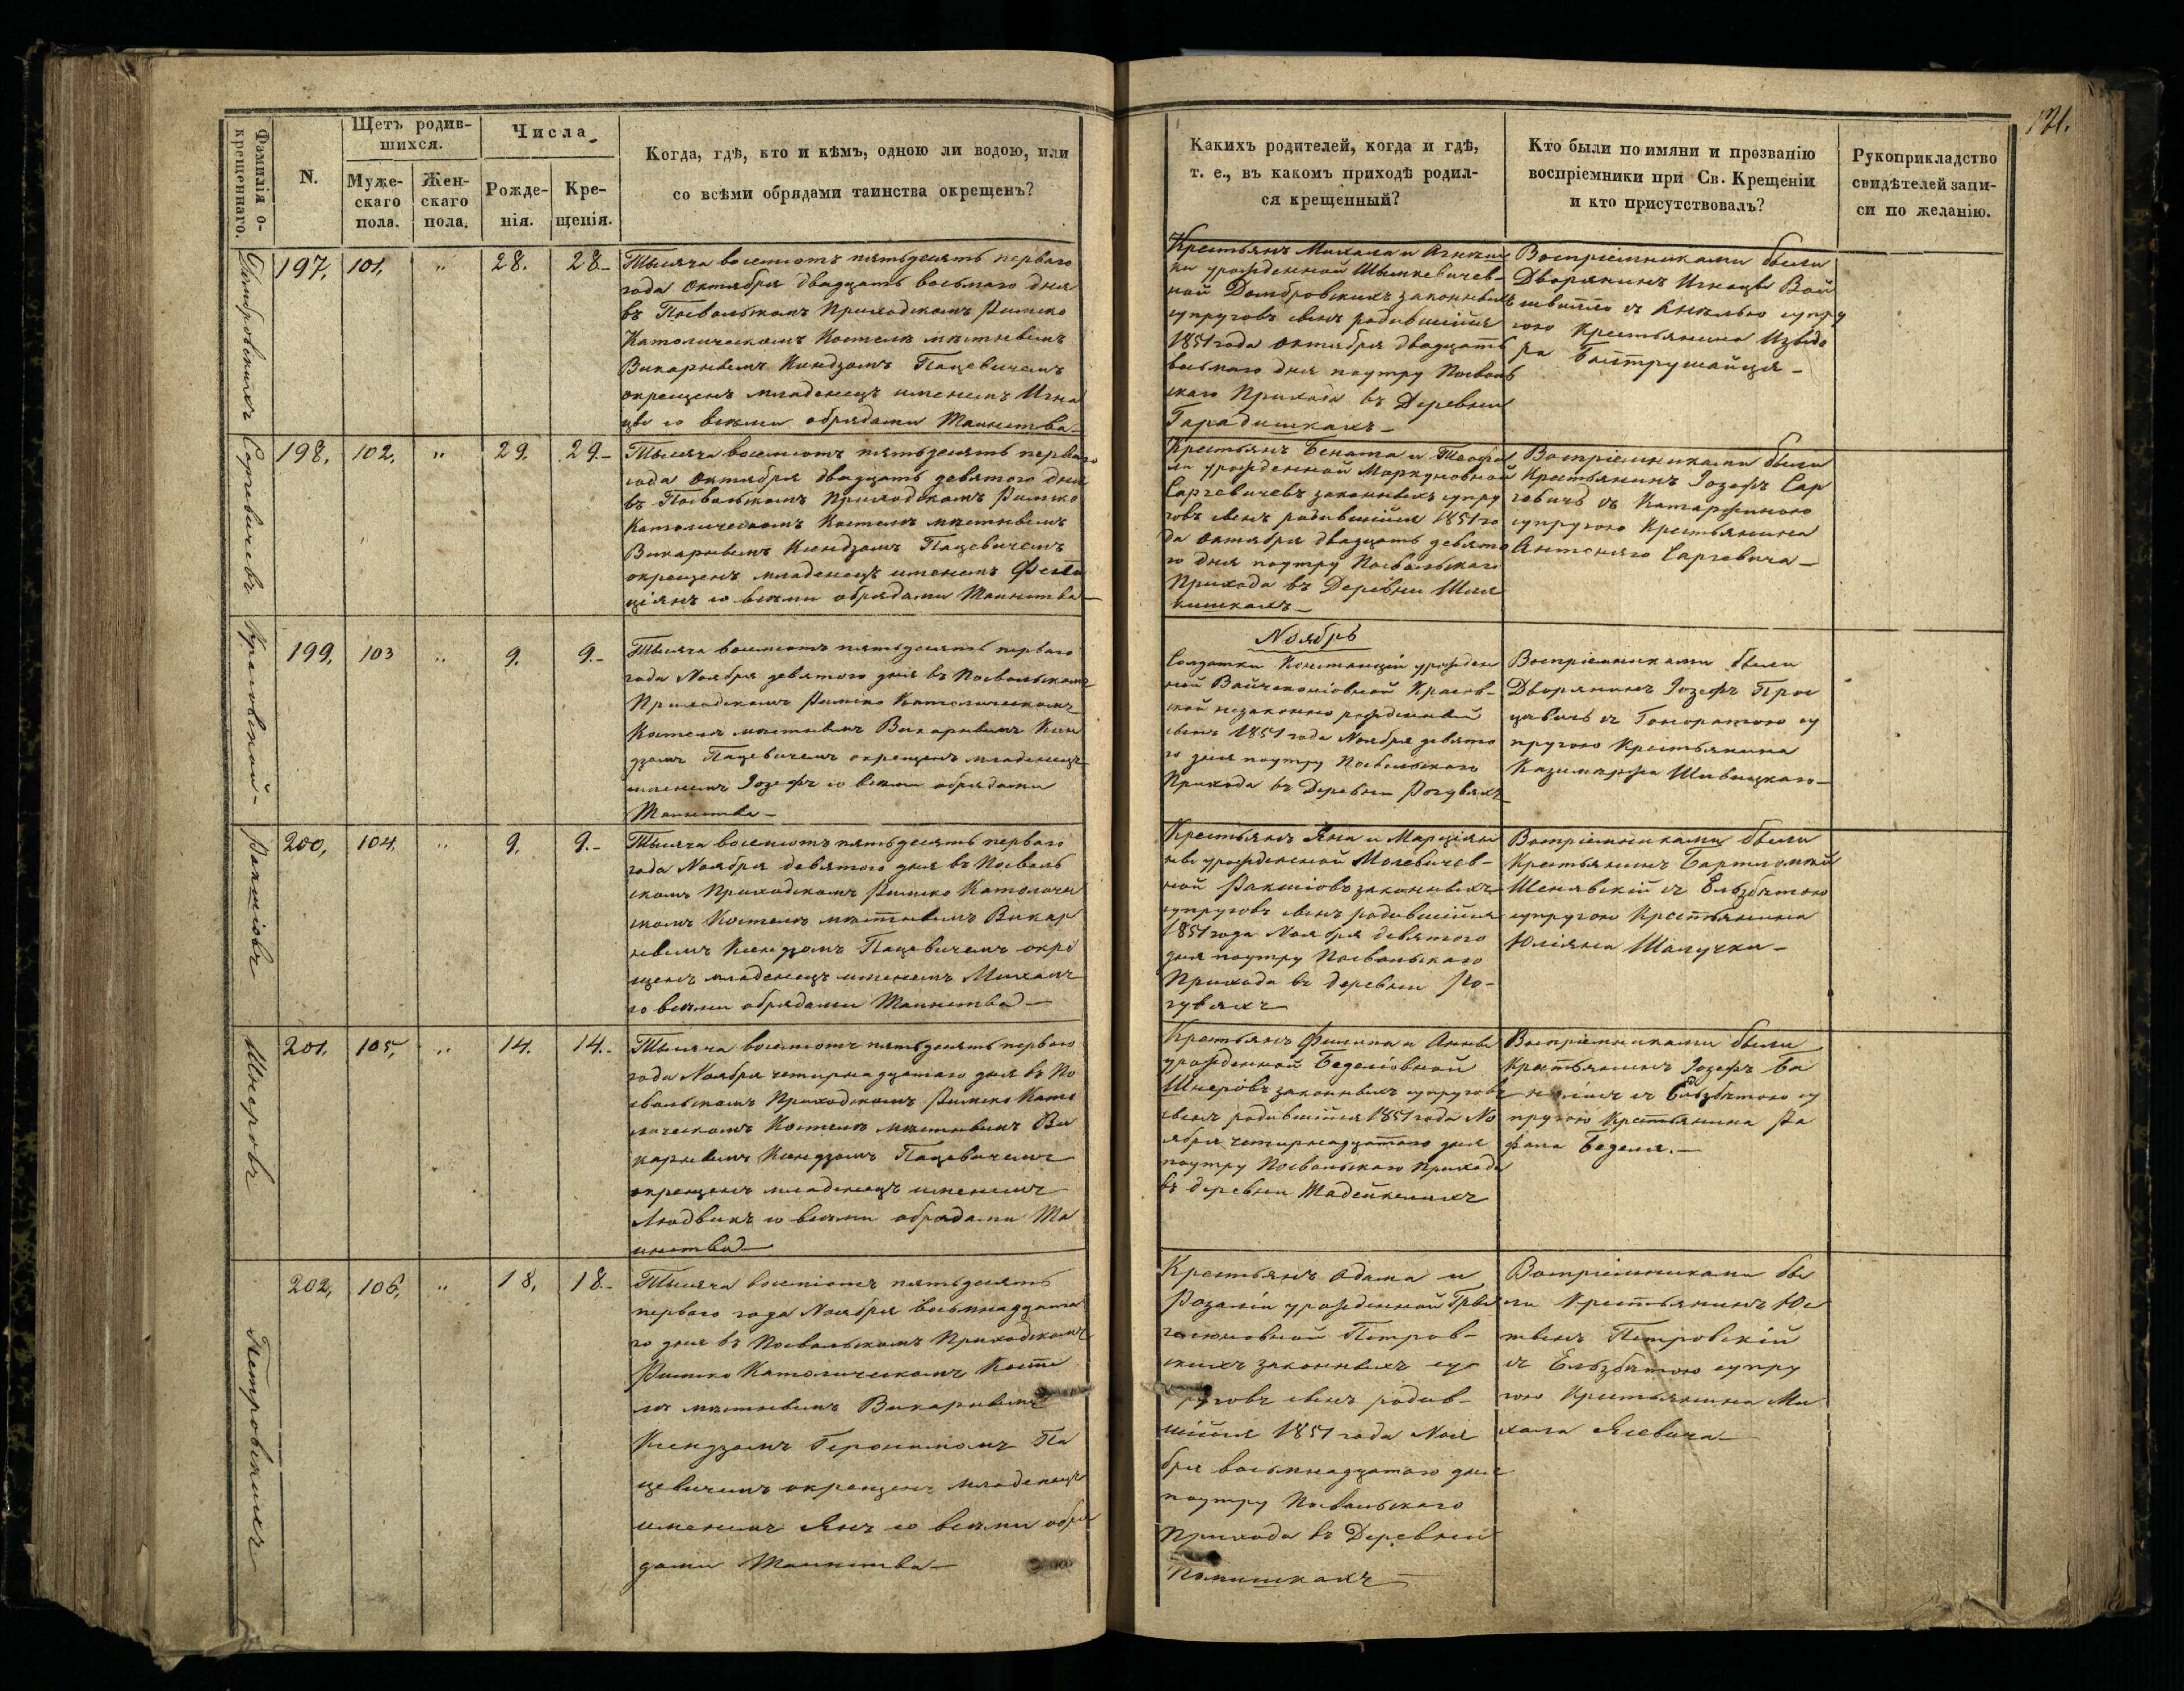 131.
Фамилія о-
крещеннаго.
N.
Щетъ родив-
шихся.
Муже-
скаго
пола.
Жен-
скаго
пола.
Числа
Рожде-
нія.
Кре-
щенія.
Когда, гдѣ, кто и кѣмъ, одною ли водою, или
со всѣми обрядами таинства окрещенъ?
Какихъ родителей, когда и гдѣ,
т. е., въ какомъ приходѣ родил-
ся крещенный?
Кто были по имяни и прозванію
воспріемники при Св. Крещеніи
и кто присутствовалъ?
Рукоприкладство
свидѣтелей запи-
си по желанію.
Домбровскихъ
197, 101, " 28. 28.-
Тысяча восемсотъ пятьдесятъ перваго
года Октября двадцать восьмаго дня
въ Посвольскомъ Приходскомъ Римско
Католическомъ Костелѣ мѣстнымъ
Викарнымъ Ксендзомъ Пацевичемъ
окрещенъ младенецъ именемъ Игна
цы со всѣми обрядами Таинства-
Крестьянъ Михала и
ки урожденной Шымкевичев-
ной Домбровскихъ законныхъ
супруговъ сынъ родившійся
1851 года Октября двадцать
восьмаго дня поутру Посволь
скаго Прихода въ Деревни
Гарадишкахъ-
Воспріемниками были
Дворянинъ Игнацы Вой
швилло съ Анелью супру
гою Крестьянина Извидо
ра Быструшайця-
Саргевичевъ
198, 102, " 29. 29.-
Тысяча восемсотъ пятьдесятъ перваго
года Октября двадцать девятого дня
въ Посвольскомъ Приходскомъ Римско
Католическомъ Костелѣ мѣстнымъ
Викарнымъ Ксендзомъ Пацевичемъ
окрещенъ младенецъ именемъ Фели
ціянъ со всѣми обрядами Таинства-
Крестьянъ Бената и Теофи
ли урожденной Моркуновной
Саргевичевъ законныхъ супру
говъ сынъ родившійся 1851 го
да Октября двадцать девято
го дня поутру Посвольскаго
Прихода въ Деревни
кишкахъ-
Воспріемниками были
Крестьянинъ Іозефъ Сар
гевичъ съ Катаржиною
супругою Крестьянина
Антоняго Саргевича-
Ноябрь
Красовской-
199, 103 " 9. 9.-
Тысяча восемсотъ пятьдесятъ перваго
года Ноября девятого дня въ Посвольскомъ
Приходскомъ Римско Католическомъ
Костелѣ мѣстнымъ Викарнымъ Ксен
дзомъ Пацевичемъ окрещенъ младенецъ
именемъ Іозефъ со всѣми обрядами
Таинства-
Солдатки Констанціи урожден
ной Вайчеконіовной Красов-
ской незаконно рожденный
сынъ 1851 года Ноября девято
го дня поутру Посвольскаго
Прихода въ Деревни Рогувяхъ
Воспріемниками были
Дворянинъ Іозефъ Прос
цевичъ съ Гоноратою су
пругою Крестьянина
Казимержа Шивицкаго-
Ракшіовъ
200, 104, " 9. 9.-
Тысяча восемсотъ пятьдесятъ перваго
года Ноября девятого дня въ Посволь
скомъ Приходскомъ Римско Католиче
скомъ Костелѣ мѣстнымъ Викар
нымъ Ксендзомъ Пацевичемъ окре
щенъ младенецъ именемъ Михалъ
со всѣми обрядами Таинства-
Крестьянъ Яна и Марціян
ны урожденной Мосевичев-
ной Ракшіовъ законныхъ
супруговъ сынъ родившійся
1851 года Ноября девятого
дня поутру Посвольскаго
Прихода въ Деревни Ро-
гувяхъ
Воспріемниками были
Крестьянинъ Бартломей
Шенявскій съ Ельзбѣтою
супругою Крестьянина
Юліяна Шалучки-
Шнеровъ
201, 105, " 14. 14.-
Тысяча восемсотъ пятьдесятъ перваго
года Ноября четырнадцатаго дня въ По
свольскомъ Приходскомъ Римско Като
лическомъ Костелѣ мѣстнымъ Ви
карнымъ Ксендзомъ Пацевичемъ
окрещенъ младенецъ именемъ
Людвикъ со всѣми обрядами Та
инства-
Крестьянъ Филипа и Анны
урожденной Беделіовной
Шнеровъ законныхъ супруговъ
сынъ родившійся 1851 года Но
ября четырнадцатаго дня
поутру Посвольскаго Прихода
въ деревни Тадейкелихъ
Воспріемниками были
Крестьянинъ Іозефъ Ба
съ Ельзбѣтою су
пругою Крестьянина Ра
фала Беделя.-
Петровскихъ
202, 106, " 18, 18.-
Тысяча восемсотъ пятьдесятъ
перваго года Ноября восьмнадцата
го дня въ Посвольскомъ Приходскомъ
Римско Католическомъ Косте
лѣ мѣстнымъ Викарнымъ
Ксендзомъ Геронимомъ Па
цевичемъ окрещенъ младенецъ
именемъ Янъ со всѣми обря
дами Таинства-
Крестьянъ Адама и
Розаліи урожденной
Петров-
скихъ законныхъ суп
руговъ сынъ родив-
шійся 1851 года Ноя
бря восьмнадцатаго дня
поутру Посвольскаго
Прихода въ Деревни
Помишкахъ-
Воспріемниками бы
ли Крестьянинъ Юс
тынъ Петровскій
съ Ельзбѣтою супру
гою Крестьянина Ми
хала Ясевича-